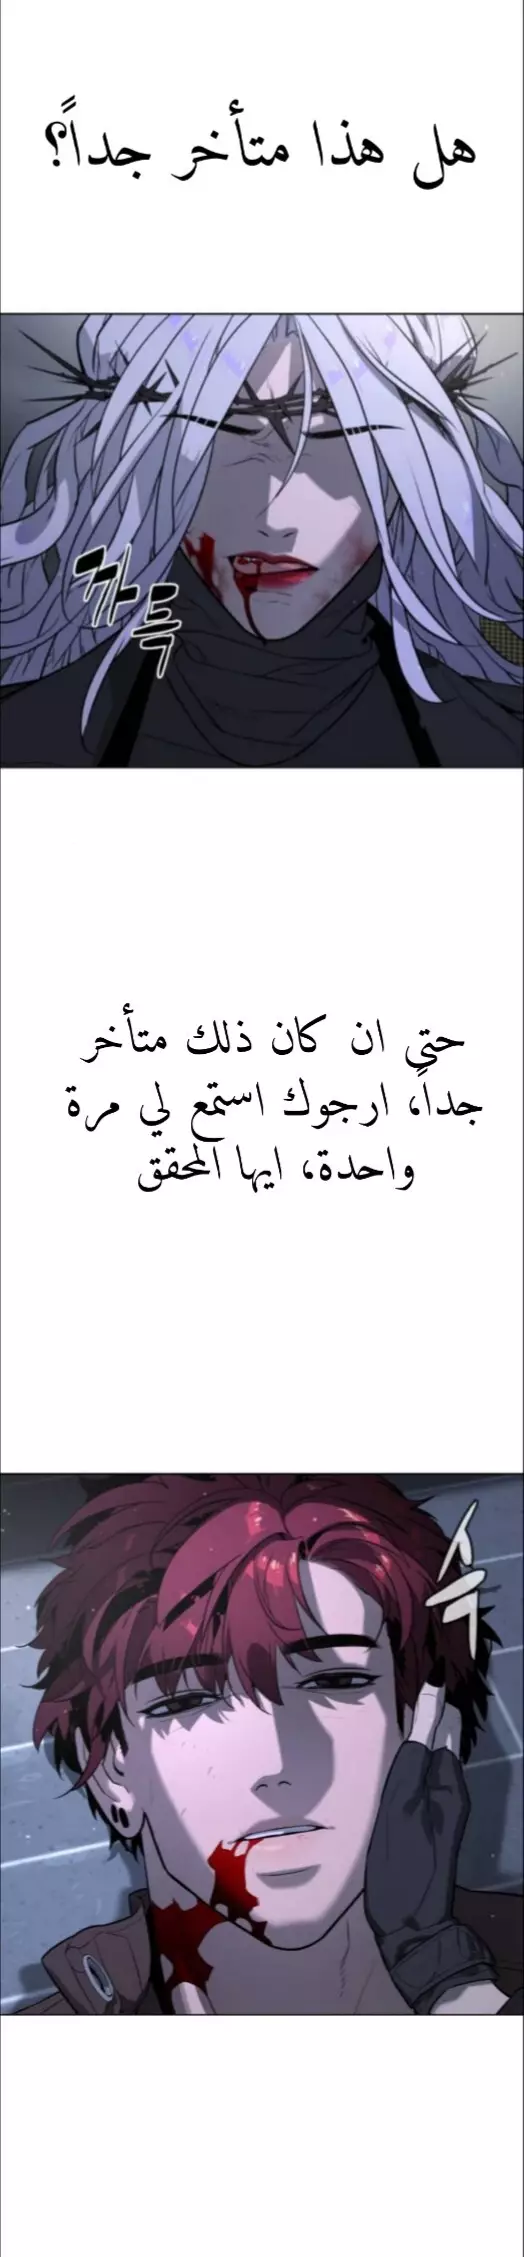 هل هذا متأخر جداً؟
까득
حتى ان كان ذلك متأخر
جداً، ارجوك استمع لي مرة
واحدة، ايها المحقق
슥